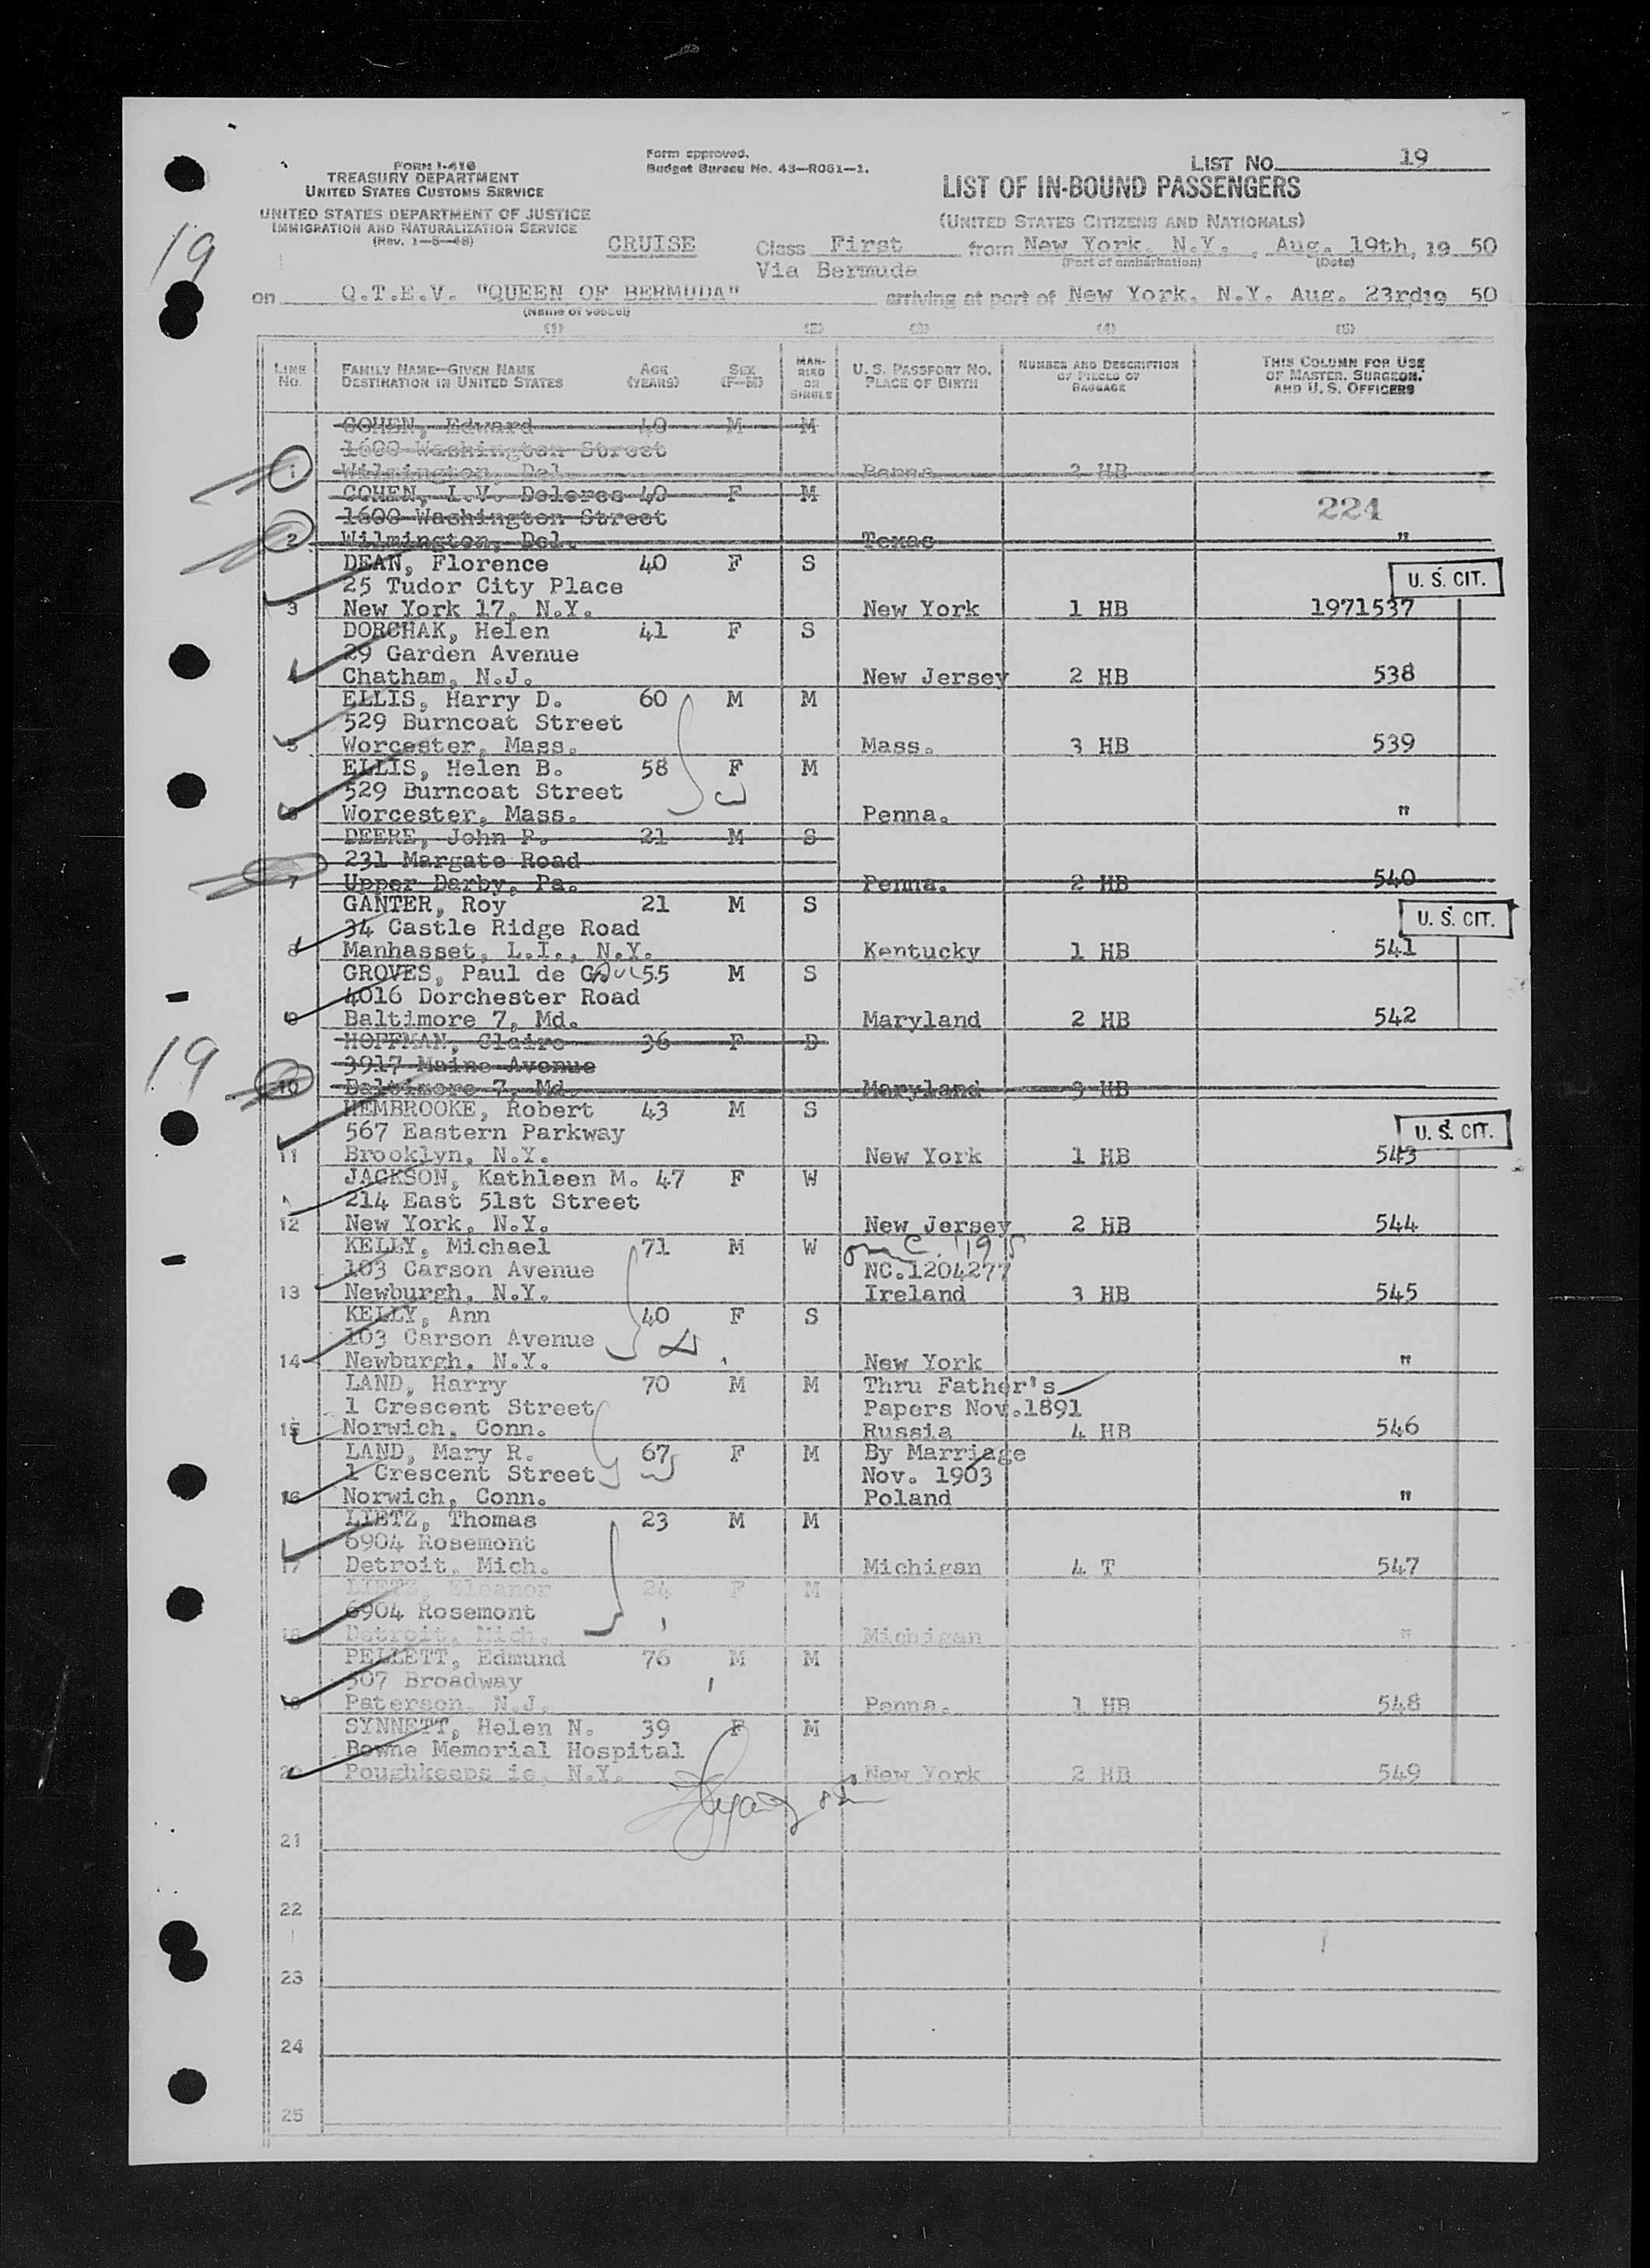 FORM I-416
TREASURY DEPARTMENT
UNITED STATES CUSTOMS SERVICE
UNITED STATES DEPARTMENT OF JUSTICE
IMMIGRATION AND NATURALIZATION SERVICE
(Rev. 1-5-48)
Form approved.
Budget Bureau No. 43-R061-1.
LIST NO. 19
LIST OF IN-BOUND PASSENGERS
(UNITED STATES CITIZENS AND NATIONALS)
19
CRUISE Class First from New York, N.Y., Aug. 19th, 19 50
(Port of embarkation) (Date)
Via Bermuda
on Q.T.E.V. "QUEEN OF BERMUDA" arriving at port of New York, N.Y. Aug. 23rd 19 50
(Name of vessel)
(1) (2) (3) (4) (5)
LINE No. FAMILY NAME—GIVEN NAME DESTINATION IN UNITED STATES AGE (YEARS) SEX (F—M) MARRIED OR SINGLE U. S. PASSPORT NO. PLACE OF BIRTH NUMBER AND DESCRIPTION OF PIECES OF BAGGAGE THIS COLUMN FOR USE OF MASTER, SURGEON, AND U. S. OFFICERS
COHEN, Edward 40 M M
1600 Washington Street
1 Wilmington, Del. Penna. 2 HB
COHEN, I.V. Doleres 40 F M
1600 Washington Street 224
2 Wilmington, Del. Texas "
DEAN, Florence 40 F S
25 Tudor City Place U. S. CIT.
3 New York 17, N.Y. New York 1 HB 1971537
DORCHAK, Helen 41 F S
29 Garden Avenue
4 Chatham, N.J. New Jersey 2 HB 538
ELLIS, Harry D. 60 M M
529 Burncoat Street
5 Worcester, Mass. Mass. 3 HB 539
ELLIS, Helen B. 58 F M
529 Burncoat Street
6 Worcester, Mass. Penna. "
DEERE, John P. 21 M S
231 Margate Road
7 Upper Darby, Pa. Penna. 2 HB 540
GANTER, Roy 21 M S
34 Castle Ridge Road U. S. CIT.
8 Manhasset, L.I., N.Y. Kentucky 1 HB 541
GROVES, Paul de 55 M S
4016 Dorchester Road
9 Baltimore 7, Md. Maryland 2 HB 542
HOFFMAN, Claire 36 F D
3917 Maine Avenue
19
10 Baltimore 7, Md. Maryland 3 HB
HEMBROOKE, Robert 43 M S
567 Eastern Parkway U. S. CIT.
11 Brooklyn, N.Y. New York 1 HB 543
JACKSON, Kathleen M. 47 F W
214 East 51st Street
12 New York, N.Y. New Jersey 2 HB 544
KELLY, Michael 71 M W
103 Carson Avenue NC.1204277
13 Newburgh, N.Y. Ireland 3 HB 545
KELLY, Ann 40 F S
103 Carson Avenue
14 Newburgh, N.Y. New York "
LAND, Harry 70 M M Thru Father's
1 Crescent Street Papers Nov.1891
15 Norwich, Conn. Russia 4 HB 546
LAND, Mary R. 67 F M By Marriage
1 Crescent Street Nov. 1903
16 Norwich, Conn. Poland "
LIETZ, Thomas 23 M M
6904 Rosemont
17 Detroit, Mich. Michigan 4 T 547
LIETZ, Eleanor 24 F M
6904 Rosemont
18 Detroit, Mich. Michigan "
PELLETT, Edmund 76 M M
507 Broadway
19 Paterson, N.J. Penna. 1 HB 548
SYNNETT, Helen N. 39 F M
Bowne Memorial Hospital
20 Poughkeeps ie, N.Y. New York 2 HB 549
21
22
23
24
25